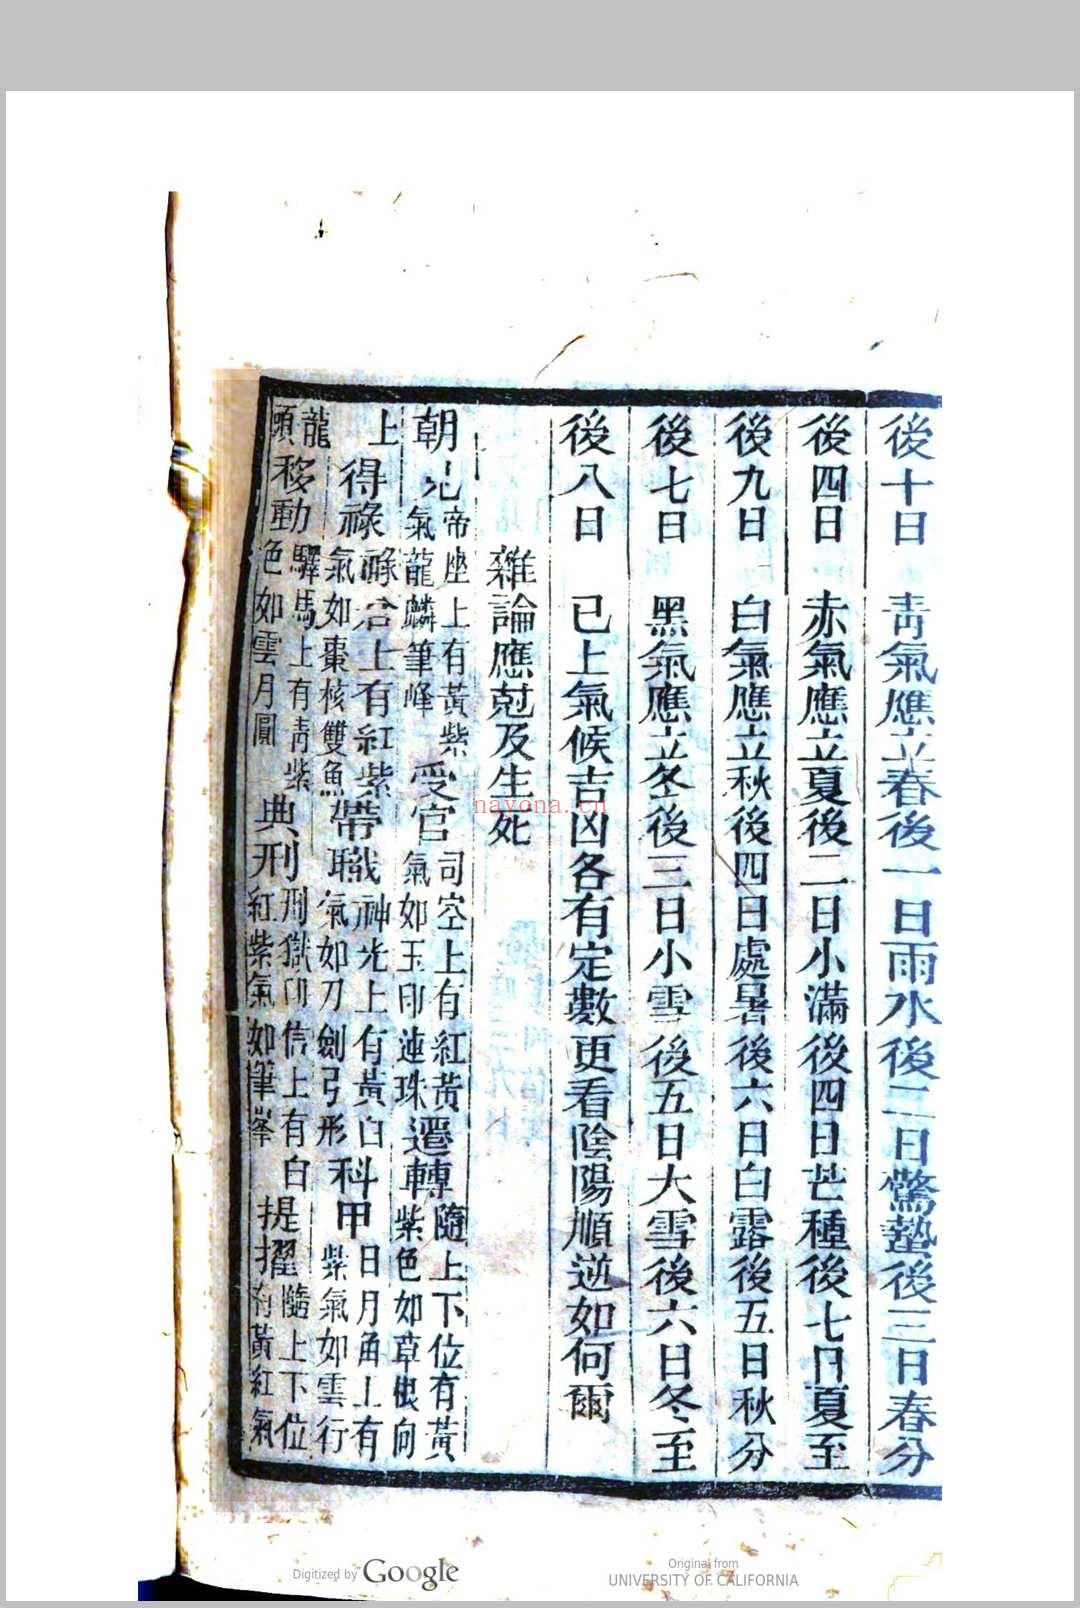 後十日　青氣應立春後一日雨水後二日驚蟄後三日春分
後四日　赤氣應立夏後二日小滿後四日芒種後七日夏至
後九日　白氣應立秋後四日處暑後六日白露後五日秋分
後七日　黑氣應立冬後三日小雪後五日大雪後六日冬至
後八日　已上氣候吉凶各有定數更看陰陽順逆如何爾
雜論應尅及生死
朝 帝座上有黃紫氣龍麟筆峰 受官 司空上有紅黃氣如玉印連珠 遷轉 隨上下位有黃紫色如草根向上
得祿 祿倉上有紅紫氣如棗核雙魚 帶職 神光上有黃白氣如刀劍弓形 科甲 日月角上有紫氣如雲行龍頭
移動 驛馬上有青紫色如雲月圓 典刑 刑獄印信上有白紅紫氣如筆峯 提擢 隨上下位有黃紅氣
nayona.cn
Digitized by Google
Original from
UNIVERSITY OF CALIFORNIA